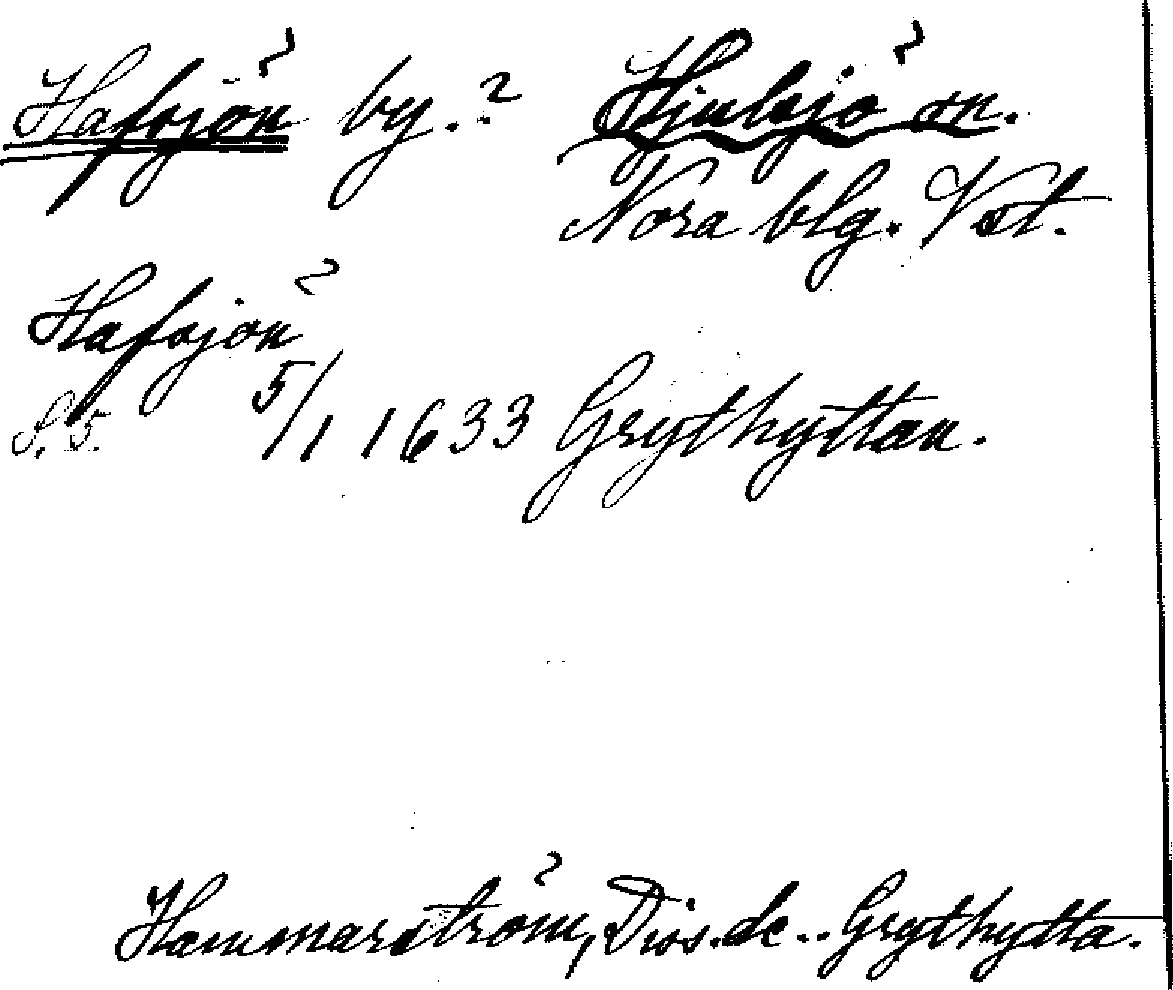 Hafsjön by.? Hjulsjö sn.
Nora blg. Vstl.
Hafsjön
S. 5. 5/1 1633 Grythyttan.
Hammarström, Diss. de.. Grythytta.